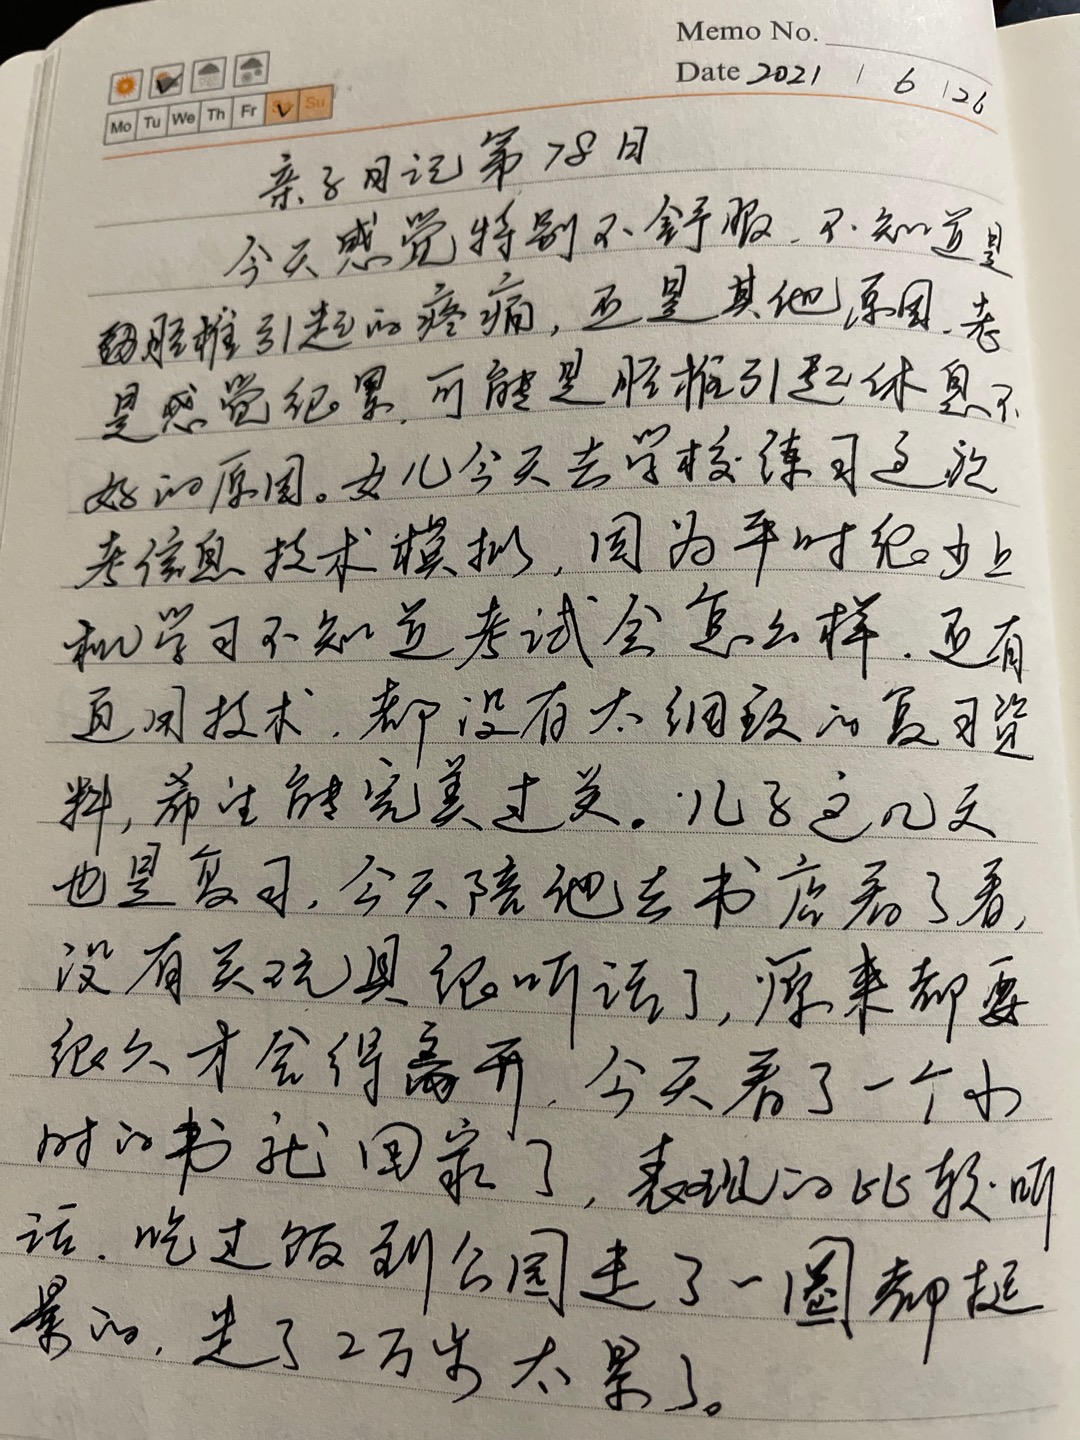 Memo No.
Date 2021 / 6 / 26
Mo Tu We Th Fr Sa Su
亲子日记第78日
今天感觉特别不舒服、不知道是
胫椎引起的疼痛，还是其他原因、老
是感觉很累、可能是胫椎引起休息不
好的原因。女儿今天去学校练习这次
考信息技术模拟，因为平时很少上
机学习不知道考试会怎么样、还有
通用技术、都没有太细致的复习资
料，希望能完美过关。儿子这几天
也是复习、今天陪他去书店看了看，
没有买玩具很听话了，原来都要
很久才舍得离开、今天看了一个小
时的书就回家了，表现的比较听
话、吃过饭到公园走了一圈都挺
累的，走了2万步太累了。